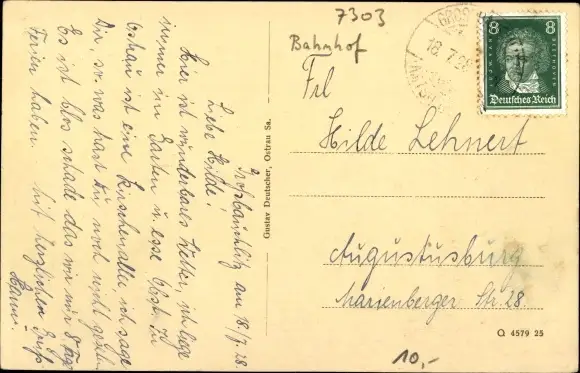 7303
Bahnhof
Großbauchlitz am 18/7. 28.
Liebe Hilde!
Hier ist wunderbares Wetter, ich liege
immer im Garten u. esse Obst. In
ist eine Kirschenallee ich sage
Dir, so was hast Du noch nicht gesehen.
Es ist blos schade das wir nur 8 Tage
Ferien haben. Mit herzlichen Gruß
Hanne.
Gustav Deutscher, Ostrau Sa.
18.7.28
8 8
BEETHOVEN
Deutsches Reich
Frl
Hilde Lehnert
Augustusburg
Marienberger Str. 28.
Q 4579 25
10,-